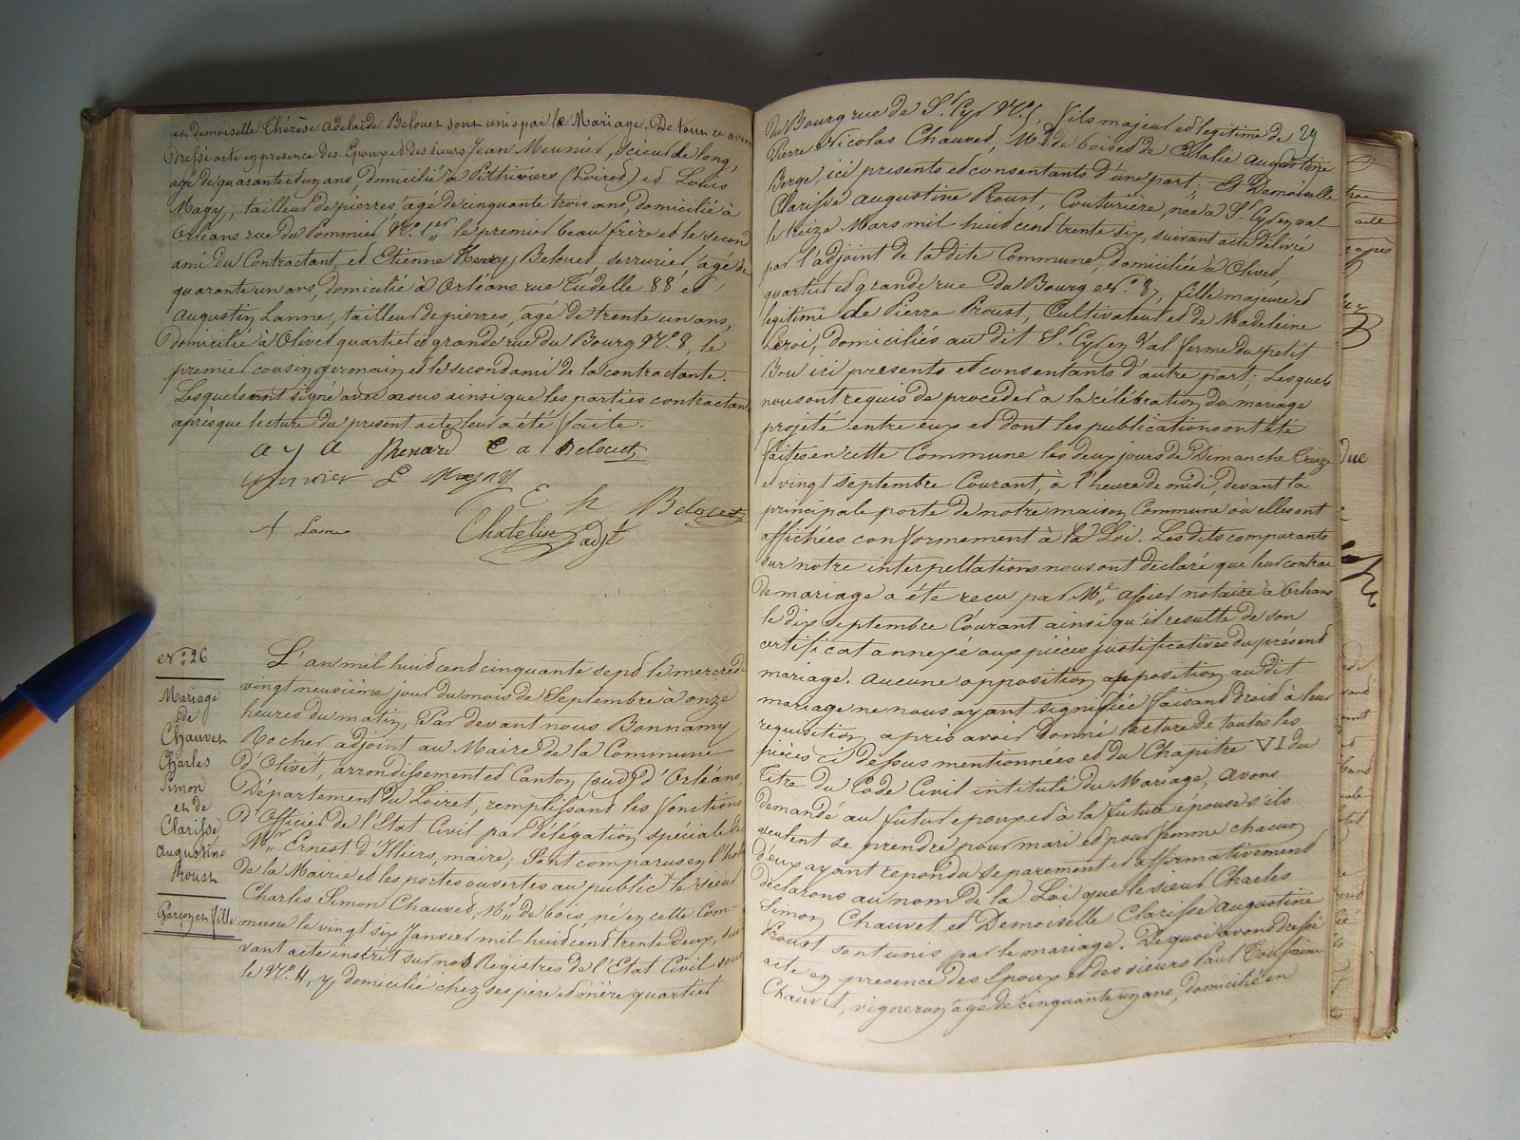 et demoiselle Thérèse Adelaide Belouet sont unis par le Mariage. De tout ce avons
dressé acte en presence des Epoux et des sieurs Jean Meunier, scieur de long,
agé de quarante et un ans, domicilié à Pithiviers (Loiret) et Louis
Magy, tailleur de pierres agé de cinquante trois ans, domicilié à
Orléans rue du Pommier le premier beau frère et le second
ami du Contractant, et Etienne Belouet, serrurier, agé de
quarante un ans, domicilié à Orléans rue Tudelle 88 et
Augustin Lanne, tailleur de pierres, agé de trente un ans,
domicilié à Olivet quartier et grande rue du Bourg N.o 8, le
premier cousin germain et le second ami de la contractante.
Lesquels ont signé avec nous ainsi que les parties contractantes
après que lecture du present acte leur a été faite.
a y a Renard t a Belouet
Munier L Magy
E h Belouet
A Lanne
Chatelin adjt
N.o 26
Mariage
de
Chauvet
Charles
Simon
et de
Clarisse
Augustine
Proust
Garçon et fille
L'an mil huit cent cinquante sept le mercredi
vingt neuvième jour du mois de Septembre à onze
heures du matin, Par devant nous Bonnamy
Rocher adjoint au Maire de la Commune
d'Olivet, arrondissement et Canton (sud) d'Orléans
Département du Loiret, remplissant les fonctions
d'Officier de l'Etat Civil par délégation spéciale de
Mr. Ernest d'Illiers, maire, Sont comparus en l'hotel
de la Mairie et les portes ouvertes au public le sieur
Charles Simon Chauvet, Md. de bois, né en cette Com-
mune le vingt six Janvier mil huit cent trente deux, sui-
vant acte inscrit sur nos Registres de l'Etat Civil sous
le N.o 4, y domicilié chez ses père et mère quartier
29
du Bourg rue de St. Cyr N.o 5, fils majeur et legitime de
Pierre Nicolas Chauvet, Md. de bois et de Eulalie Augustine
Berge, ici presents et consentants d'une part; Et Demoiselle
Clarisse Augustine Proust, Couturière, née à St. Cyr en val
le treize Mars mil huit cent trente six, suivant acte délivré
par l'adjoint de la dite Commune, domiciliée à Olivet,
quartier et grande rue du Bourg N.o 8, fille majeure et
legitime de Pierre Proust, Cultivateur et de Madeleine
Leroi, domiciliés au dit St. Cyr en Val ferme du petit
Bou ici presents et consentants d'autre part; Lesquels
nous ont requis de procéder à la célébration du mariage
projeté entre eux et dont les publications ont été
faites en cette Commune les deux jours de Dimanche treize
et vingt Septembre Courant, à l'heure de midi, devant la
principale porte de notre maison Commune où elles ont
affichées conformement à la Loi. Les dits comparants
sur notre interpellation nous ont declaré que leur contrat
de mariage a été recu par Me. Assier notaire à Orléans
le dix septembre Courant ainsi qu'il resulte de son
certificat annexé aux pièces justificatives du présent
mariage. Aucune opposition opposition au dit
mariage ne nous ayant signifiée faisant droit à leur
requisition, après avoir donné lecture de toutes les
pièces ci dessus mentionnées et du Chapitre VI du
titre du Code Civil intitulé du Mariage, avons
demandé au futur epoux et à la future épouse s'ils
veulent se prendre pour mari et pour femme chacun
d'eux ayant repondu separement et affirmativement
declarons au nom de la Loi que le sieur Charles
Simon Chauvet et Demoiselle Clarisse Augustine
Proust sont unis par le mariage. De quoi avons dressé
acte en presence des Epoux et des sieurs Paul Toussaint
Chauvet, vigneron agé de cinquante un ans, domicilié en